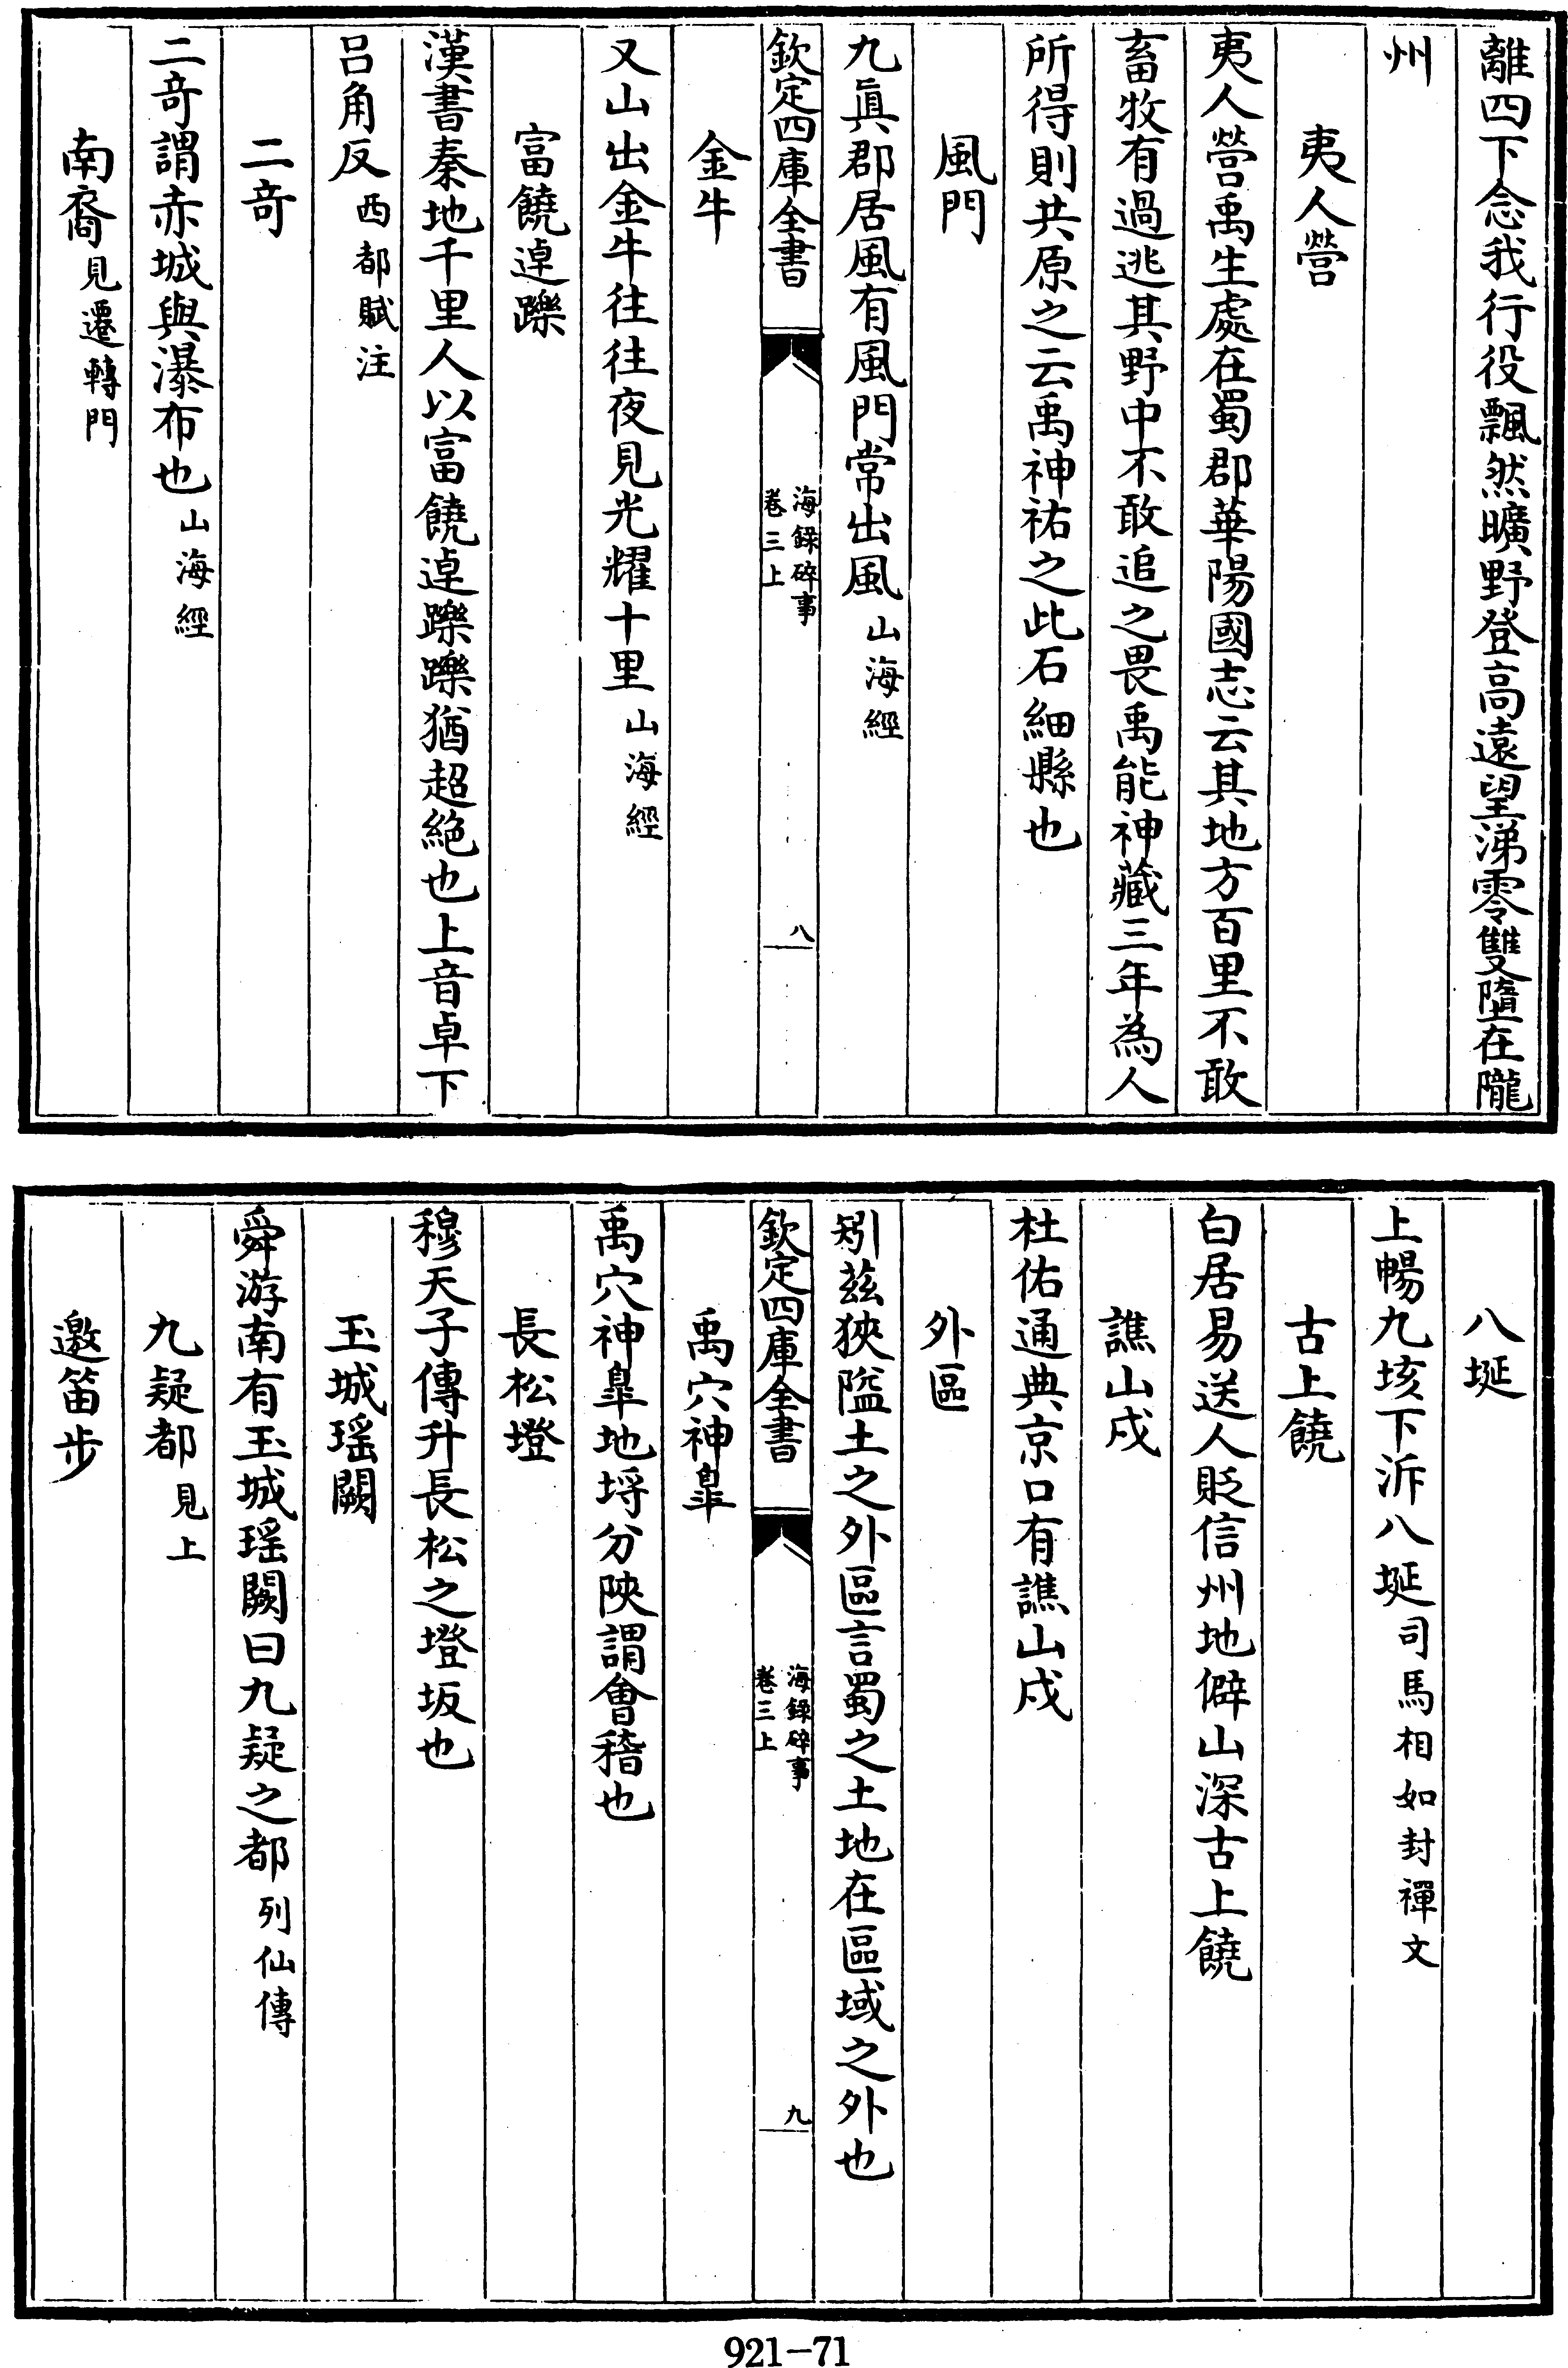 離四下念我行役飄然曠野登高遠望涕零雙墮在隴
州
夷人營
夷人營禹生處在蜀郡華陽國志云其地方百里不敢
畜牧有過逃其野中不敢追之畏禹能神藏三年為人
所得則共原之云禹神祐之此石細縣也
風門
九真郡居風有風門常出風山海經
欽定四庫全書
海錄碎事
卷三上
八
金牛
又山出金牛往往夜見光耀十里山海經
富饒逴躒
漢書秦地千里人以富饒逴躒躒猶超絶也上音卓下
吕角反西都賦注
二竒
二竒謂赤城與瀑布也山海經
南裔見遷轉門
八埏
上暢九垓下泝八埏司馬相如封禪文
古上饒
白居易送人貶信州地僻山深古上饒
譙山戍
杜佑通典京口有譙山戍
外區
矧茲狹隘土之外區言蜀之土地在區域之外也
欽定四庫全書
海錄碎事
卷三上
九
禹穴神臯
禹穴神臯地埒分陜謂會稽也
長松墱
穆天子傳升長松之墱坂也
玉城瑶闕
舜游南有玉城瑶闕曰九疑之都列仙傳
九疑都見上
邀笛步
921-71